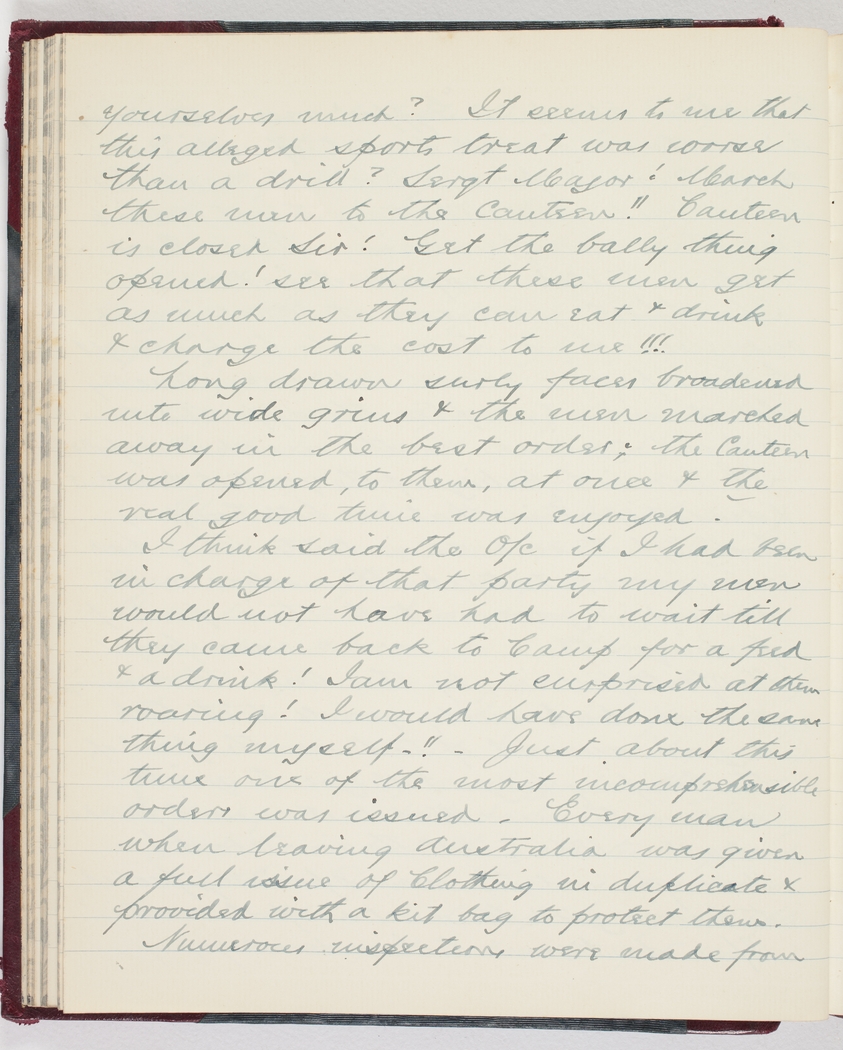 yourselves much? It seems to me that
this alleged sports treat was worse
than a drill? Sergt Major! March
these men to the Canteen!! Canteen
is closed Sir! Get the bally thing
opened! see that these men get
as much as they can eat & drink
& charge the cost to me!!!
Long drawn surly faces broadened
into wide grins & the men marched
away in the best order; the Canteen
was opened, to them, at once & the
real good time was enjoyed.
I think said the O/c if I had been
in charge of that party my men
would not have had to wait till
they came back to Camp for a feed
& a drink! I am not surprised at them
roaring! I would have done the same
thing myself-!! - Just about this
time one of the most incomprehensible
orders was issued - Every man
when leaving Australia was given
a full issue of Clothing in duplicate &
provided with a kit bag to protect them.
Numerous inspections were made from